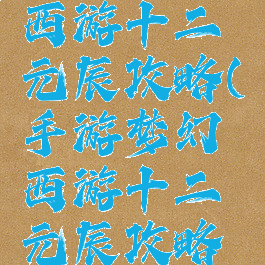 西游十二
元辰攻略(
手游梦幻
西游十二
元辰攻略